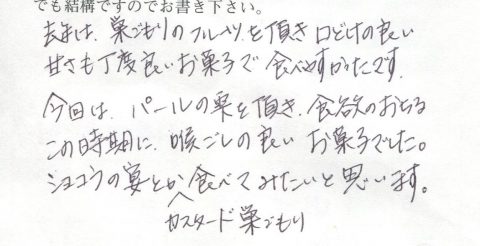 でも結構ですのでお書き下さい。
去年は、巣ごもりのフルーツを頂き口どけの良い
甘さも丁度良いお菓子で食べやすかったです。
今回は、パールの巣を頂き、食欲のおちる
この時期に、喉ごしの良いお菓子でした。
ショコラの宴とか食べてみたいと思います。
カスタード巣ごもり